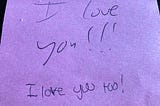 I love
you!!!
I love you too!